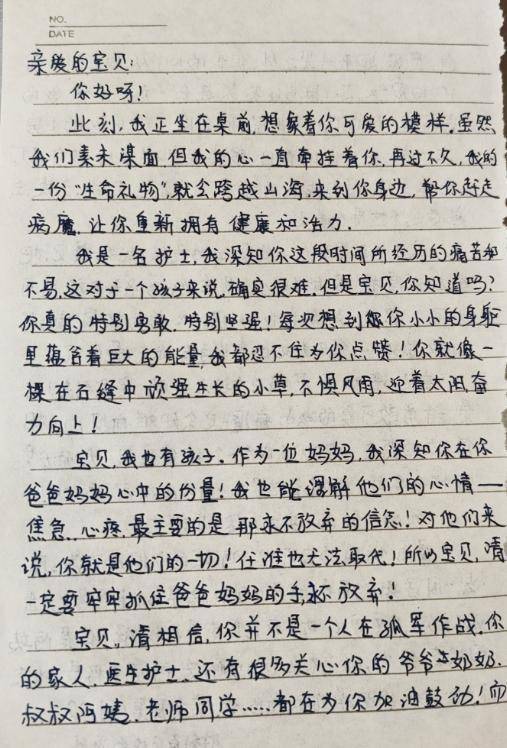 NO.
DATE
亲爱的宝贝:
你好呀!
此刻,我正坐在桌前,想象着你可爱的模样.虽然
我们素未谋面,但我的心一直牵挂着你.再过不久,我的
一份“生命礼物”,就会跨越山海,来到你身边,帮你赶走
病魔,让你重新拥有健康和活力.
我是一名护士,我深知你这段时间所经历的痛苦和
不易,这对于一个孩子来说,确实很难.但是宝贝,你知道吗?
你真的特别勇敢,特别坚强!每次想到你小小的身躯
里蕴含着巨大的能量,我都忍不住为你点赞!你就像一
棵在石缝中顽强生长的小草,不惧风雨,迎着太阳奋
力向上!
宝贝,我也有孩子.作为一位妈妈,我深知你在你
爸爸妈妈心中的份量!我也能理解他们的心情——
焦急、心疼,最主要的是那永不放弃的信念!对他们来
说,你就是他们的一切!任谁也无法取代!所以宝贝,请
一定要牢牢抓住爸爸妈妈的手,别放弃!
宝贝,请相信,你并不是一个人在孤军作战.你
的家人、医生护士、还有很多关心你的爷爷奶奶、
叔叔阿姨、老师同学.....都在为你加油鼓劲!而